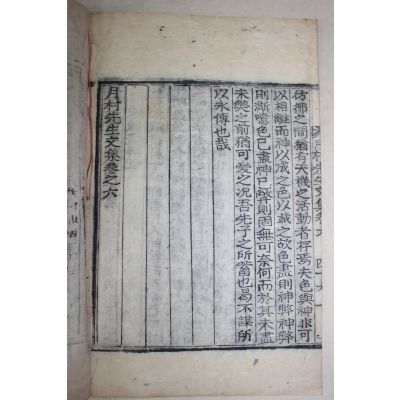 彷彿之間猶有天機之活動者存焉夫色與神非可
以相離而神以成之色以載之故色盡則神弊神弊
則漸噫色已盡神已弊則固無可奈何而於其未盡
未弊之前猶可愛之況吾先子之所嘗也曷不謀所
以永傳也哉
月村先生文集卷之六